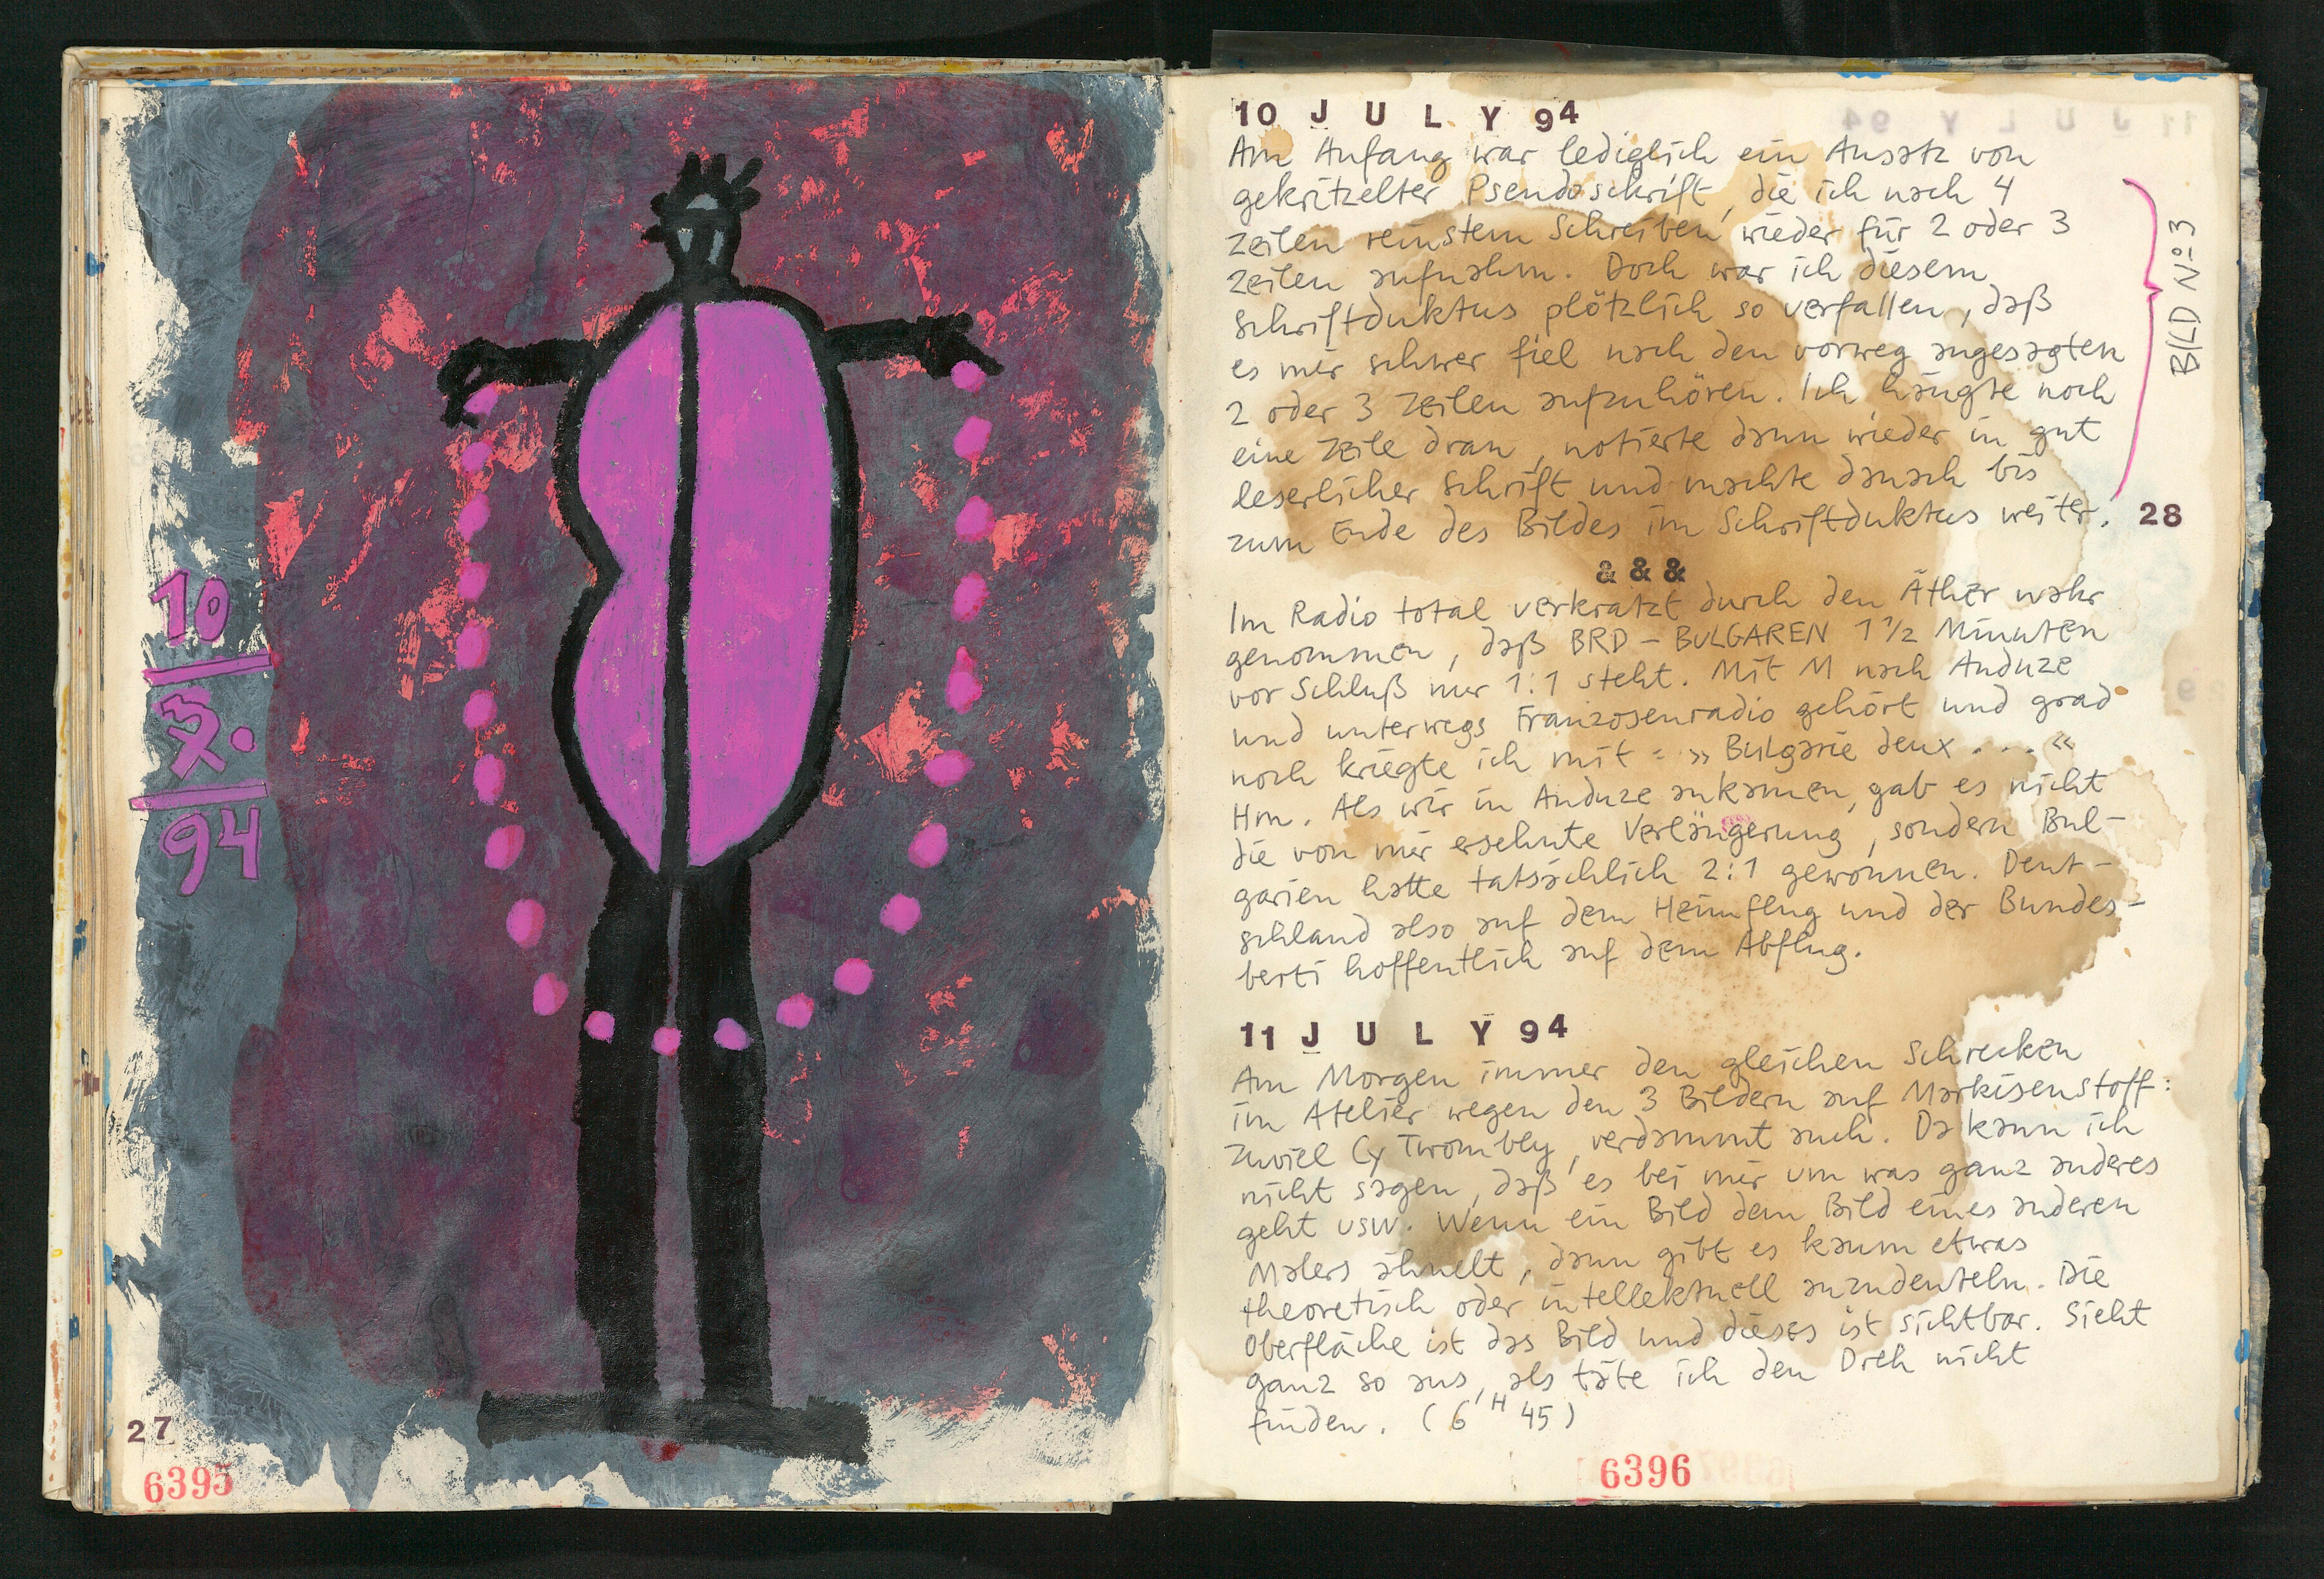 10
X.
94
27
6395
10 JULY 94
Am Anfang war lediglich ein Ansatz von
gekritzelter Pseudoschrift, die ich nach 4
Zeilen reinstem Schreiben wieder für 2 oder 3
Zeilen aufnahm. Doch war ich diesem
Schriftduktus plötzlich so verfallen, daß
es mir schwer fiel nach den vorweg angesagten
2 oder 3 Zeilen aufzuhören. Ich hängte noch
eine Zeile dran, notierte dann wieder in gut
leserlicher Schrift und machte danach bis
zum Ende des Bildes im Schriftduktus weiter.
BILD No 3
28
& & &
Im Radio total verkratzt durch den Äther wahr
genommen, daß BRD – BULGAREN 1 1/2 Minuten
vor Schluß nur 1:1 steht. Mit M nach Anduze
und unterwegs Franzosenradio gehört und grad
noch kriegte ich mit: »Bulgarie deux . . . «
Hm. Als wir in Anduze ankamen, gab es nicht
die von mir ersehnte Verlängerung, sondern Bul-
garien hatte tatsächlich 2:1 gewonnen. Deut-
schland also auf dem Heimflug und der Bundes-
berti hoffentlich auf dem Abflug.
11 JULY 94
Am Morgen immer den gleichen Schrecken
im Atelier wegen den 3 Bildern auf Markisenstoff:
zuviel Cy Twombly, verdammt auch. Da kann ich
nicht sagen, daß es bei mir um was ganz anderes
geht usw. Wenn ein Bild dem Bild eines anderen
Malers ähnelt, dann gibt es kaum etwas
theoretisch oder intellektuell anzudeuteln. Die
Oberfläche ist das Bild und dieses ist sichtbar. Sieht
ganz so aus, als täte ich den Dreh nicht
finden. (6 H 45)
6396